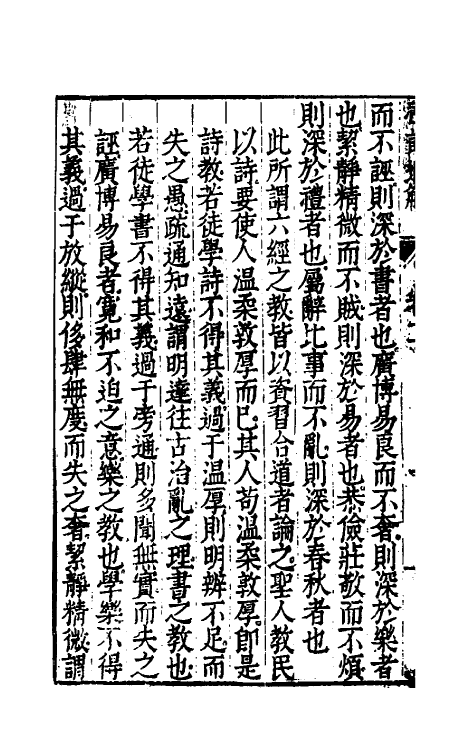 而不誣則深於書者也廣博易良而不奢則深於樂者
也絜靜精微而不賊則深於易者也恭儉莊敬而不煩
則深於禮者也屬辭比事而不亂則深於春秋者也
此所謂六經之教皆以資習合道者論之聖人教民
以詩要使人温柔敦厚而已其人苟温柔敦厚即是
詩教若徒學詩不得其義過于温厚則明辨不足而
失之愚疏通知遠謂明達往古治亂之理書之教也
若徒學書不得其義過于旁通則多聞無實而失之
誣廣博易良者寬和不迫之意樂之教也學樂不得
其義過于放縱則侈肆無度而失之奢絜靜精微謂